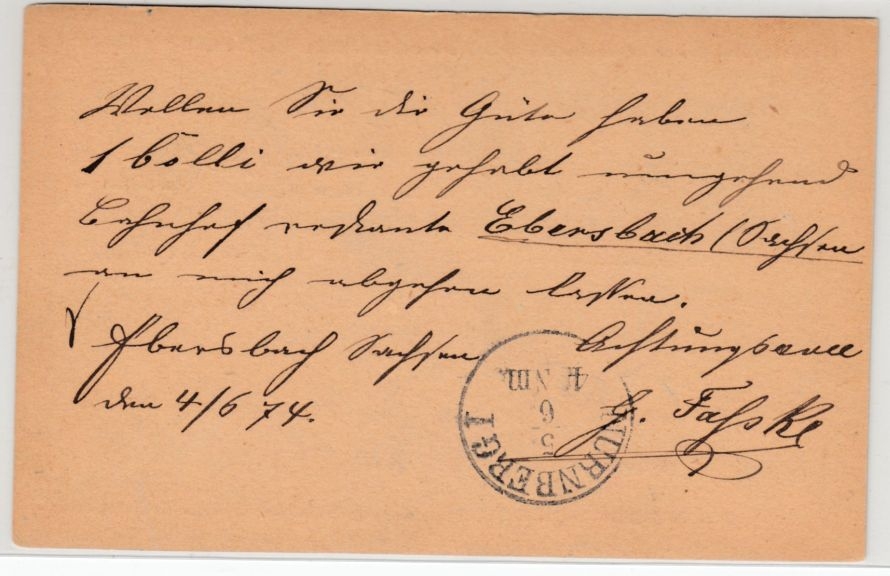 Wollen Sie die Güte haben
1 Colli wie gehabt umgehend
Bahnhof restante Ebersbach (Sachsen
an mich abgehen lassen.
Ebersbach Sachsen Achtungsvoll
den 4/6 74.
NÜRNBERG I
5
6
4. Nm.